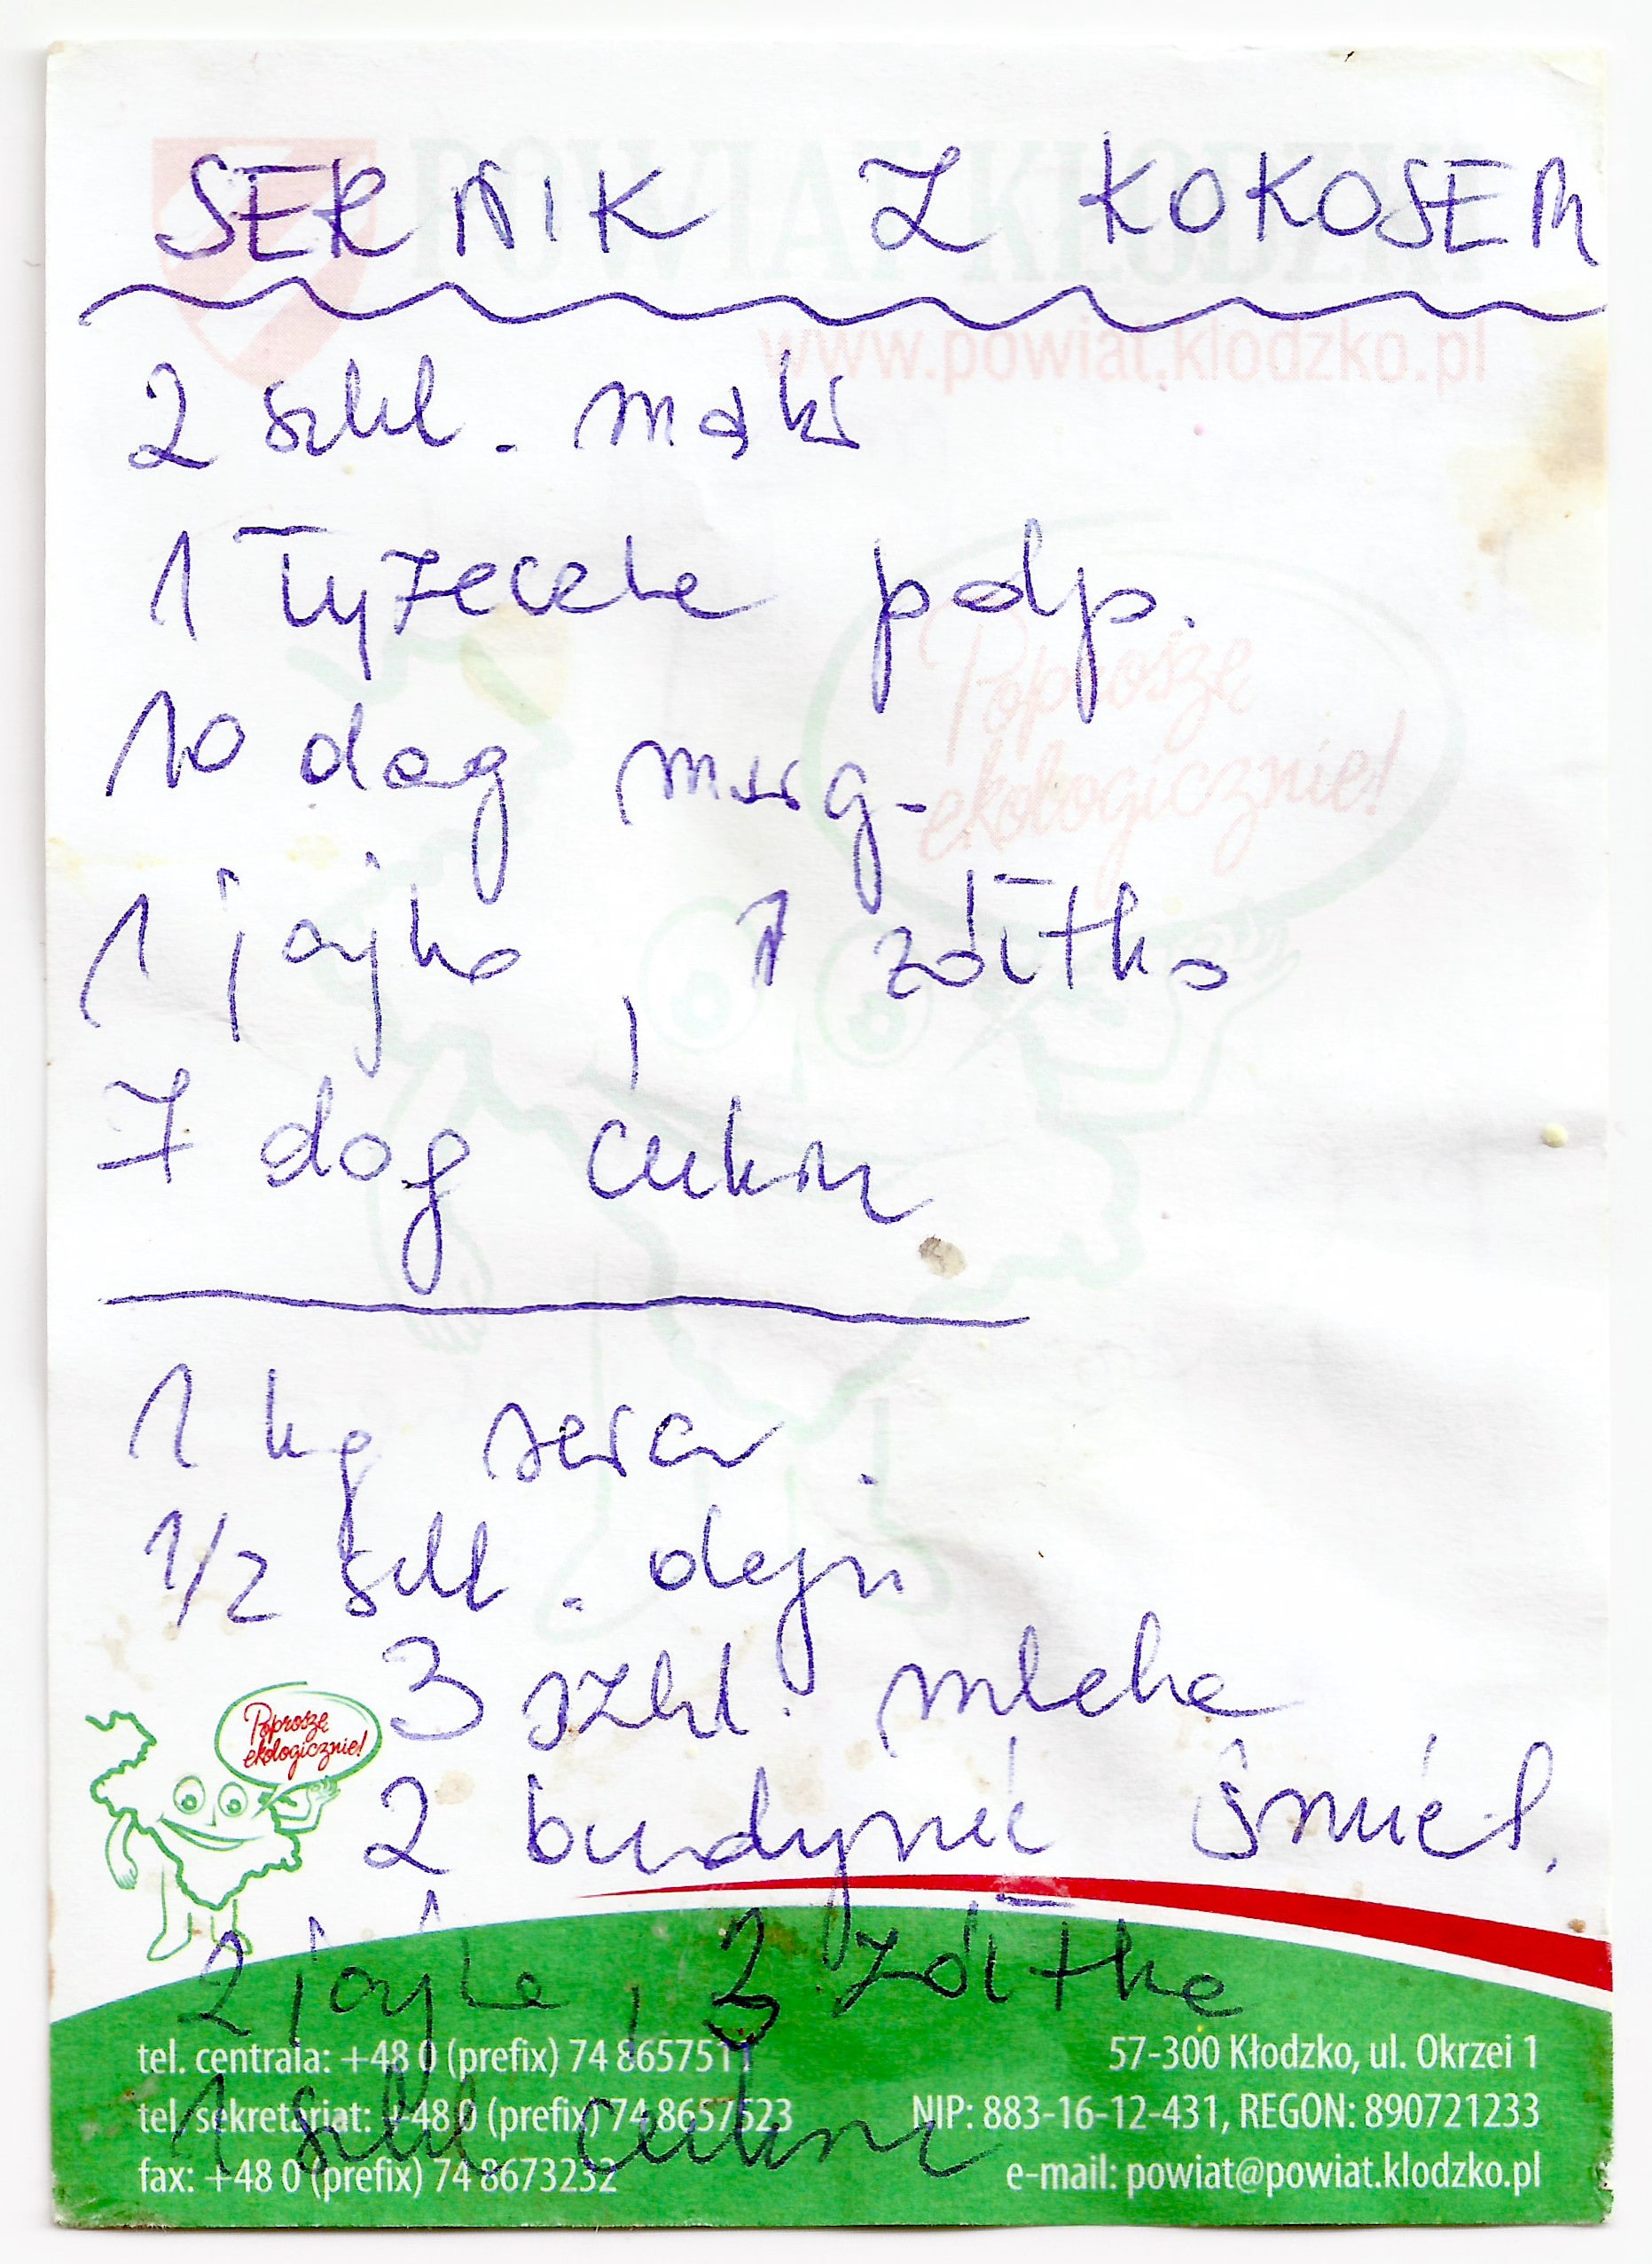 SERNIK Z KOKOSEM
www.powiat.klodzko.pl
2 szkl. mąki
1 łyżeczka podp.
10 dag marg.
1 jajko, 1 żółtko
7 dag cukru
1 kg sera.
1/2 szkl. oleju
3 szkl. mleka
2 budynie śmiet.
2 jajka, 3 żółtka
1 szkl cukru
Poproszę
ekologicznie!
Poproszę
ekologicznie!
tel. centrala: +48 0 (prefix) 74 8657511
tel. sekretariat: +48 0 (prefix) 74 8657523
fax: +48 0 (prefix) 74 8673232
57-300 Kłodzko, ul. Okrzei 1
NIP: 883-16-12-431, REGON: 890721233
e-mail: powiat@powiat.klodzko.pl